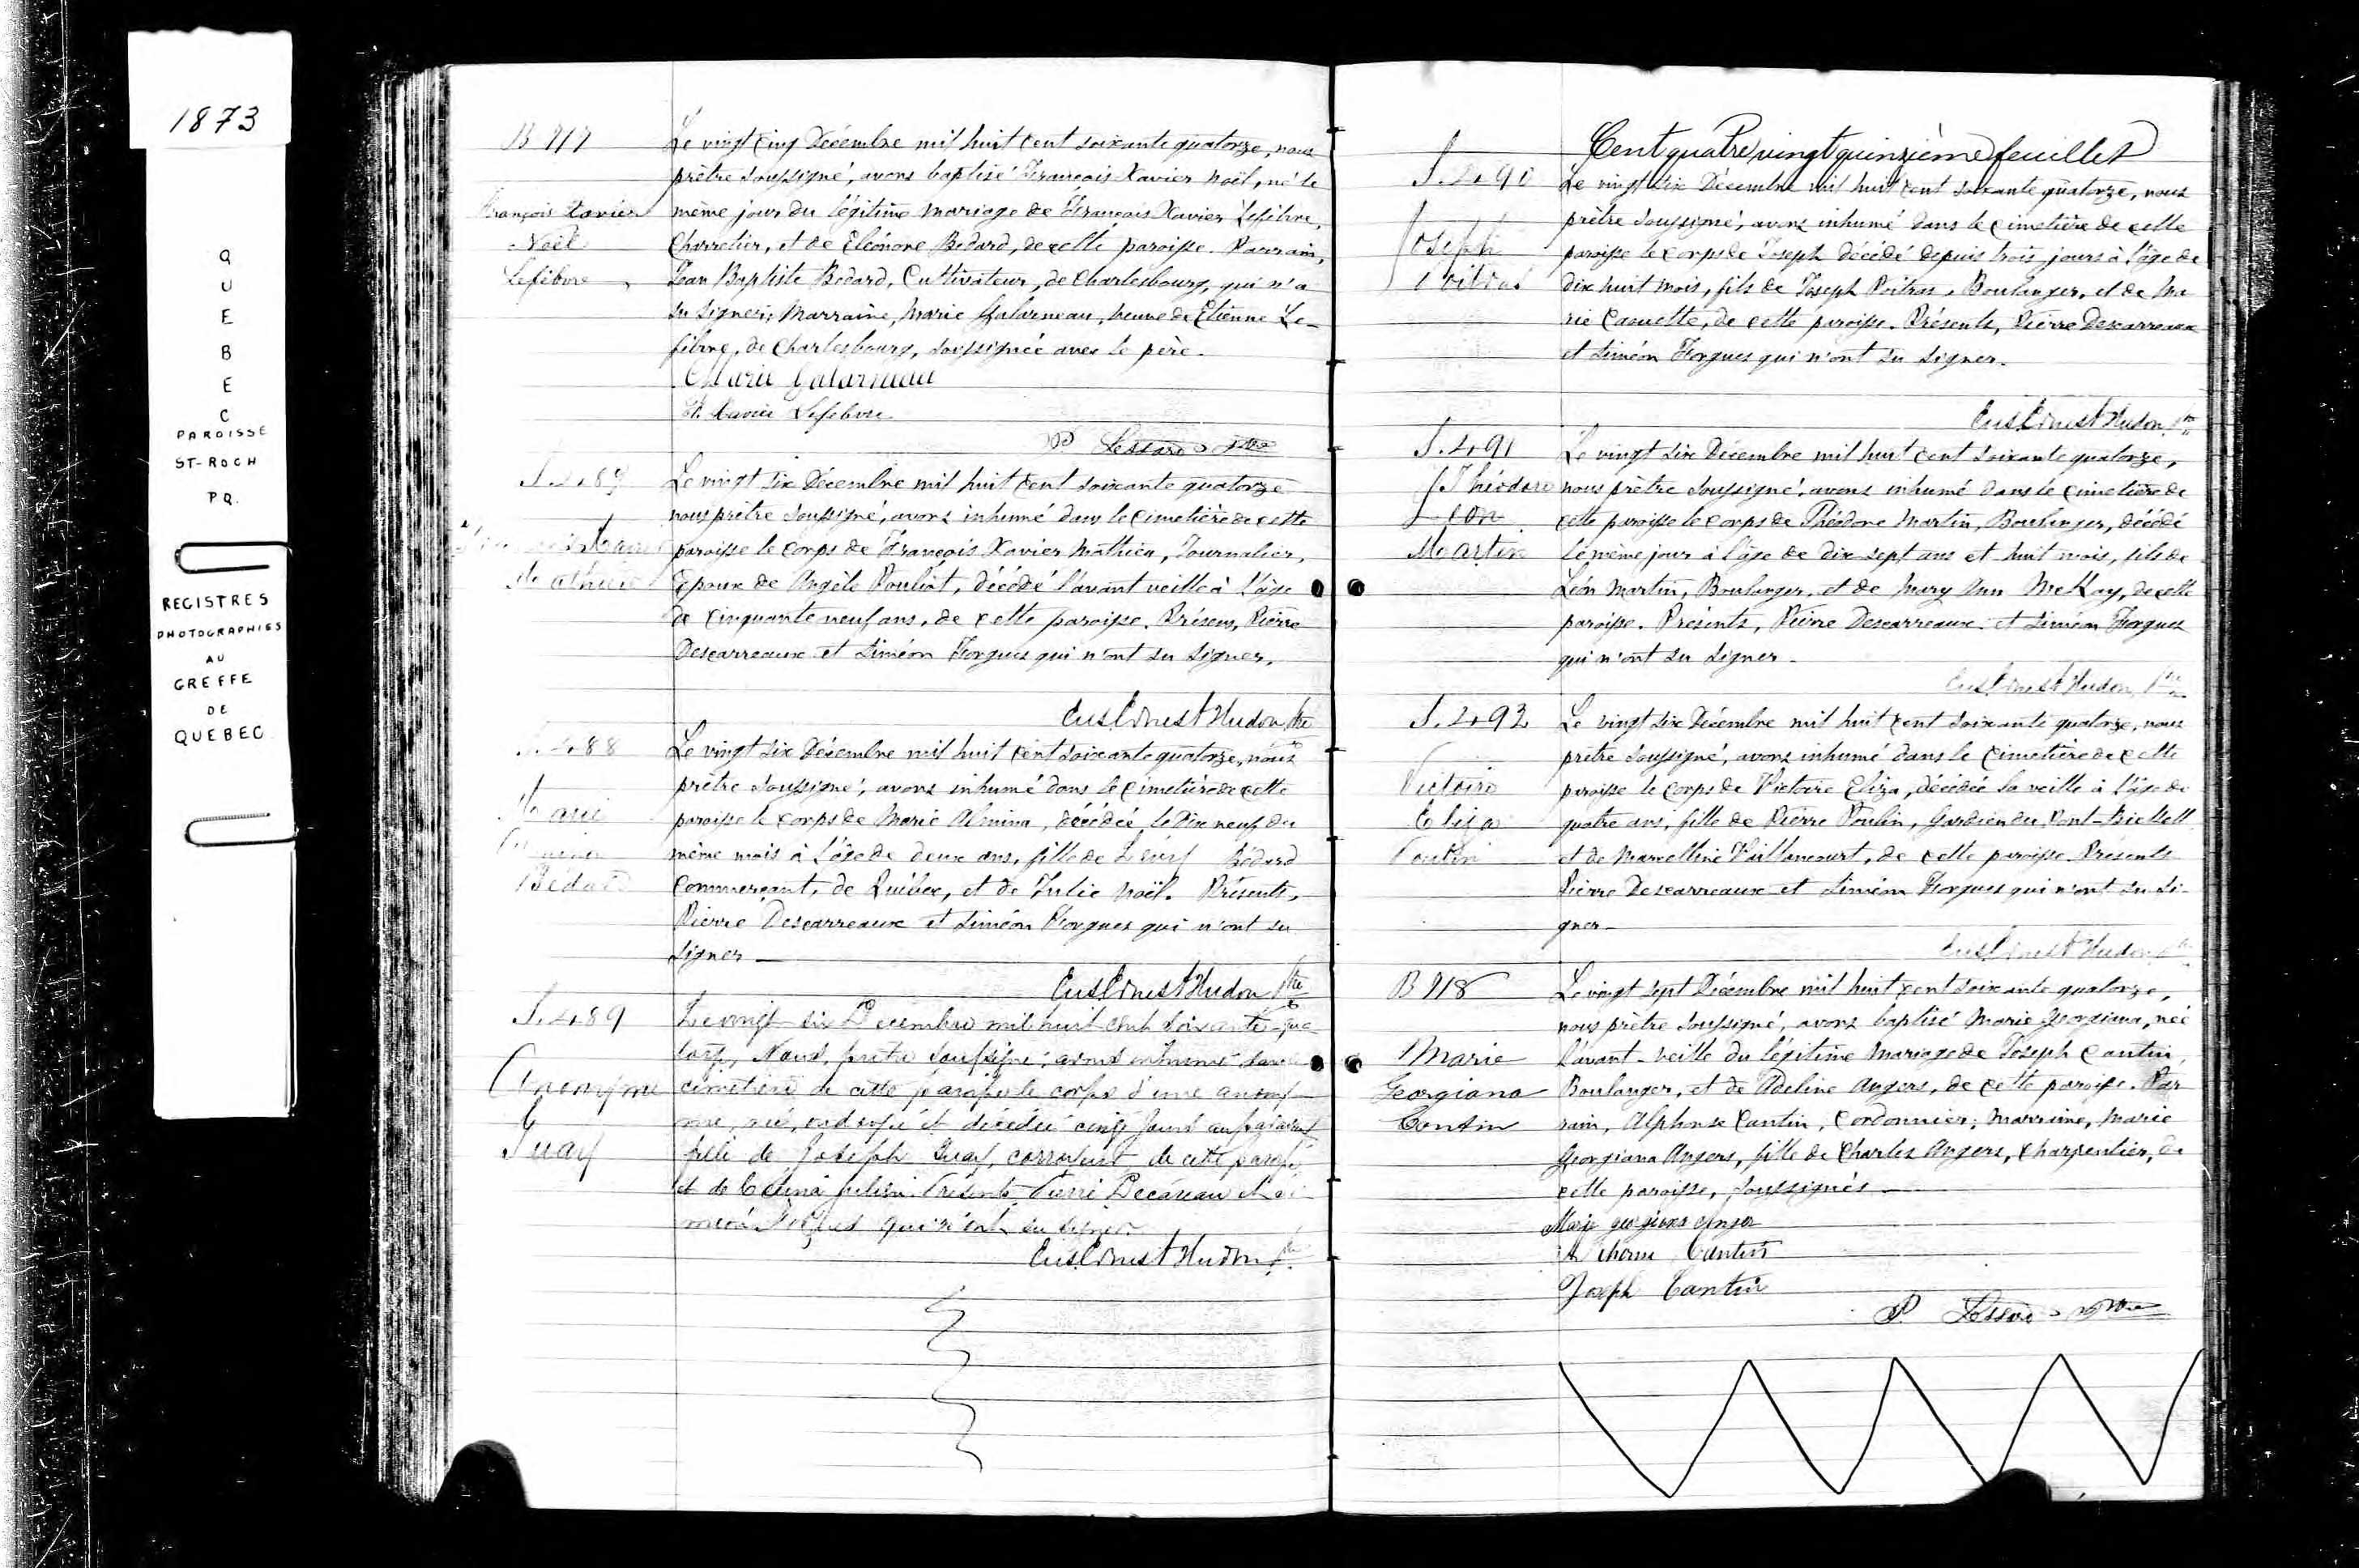 1873
QUEBEC
PAROISSE
ST-ROCH
PQ.
REGISTRES
PHOTOGRAPHIES
AU
GREFFE
DE
QUEBEC
B 917
François Xavier
Noël
Lefebvre
Le vingt cinq Décembre mil huit cent soixante quatorze, nous
prêtre soussigné, avons baptisé François Xavier Noël, né le
même jour du légitime mariage de François Xavier Lefebvre,
Charretier, et de Eléonore Bedard, de cette paroisse. Parrain,
Jean Baptiste Bedard, Cultivateur, de Charlesbourg, qui n'a
su signer; Marraine, Marie Galarneau, veuve de Etienne Le-
febvre, de Charlesbourg, soussignée avec le père.
Marie Galarneau
F. Xavier Lefebvre
P Lessard Ptre
S. 487
Xavier
Mathieu
Le vingt six Décembre mil huit cent soixante quatorze
nous prêtre soussigné, avons inhumé dans le cimetière de cette
paroisse le corps de François Xavier Mathieu, Journalier,
Epoux de Angèle Pouliot, décédé l'avant veille à l'âge
de cinquante neuf ans, de cette paroisse. Présens, Pierre
Descarreaux et Siméon Forgues qui n'ont su signer.
Eus Ernest Hudon Ptre
S. 488
Marie
Bédard
Le vingt six Décembre mil huit cent soixante quatorze, nous
prêtre soussigné, avons inhumé dans le cimetière de cette
paroisse le corps de Marie Almina, décédée le dix neuf du
même mois à l'âge de deux ans, fille de Bédard
Commerçant, de Québec, et de Julie Noël. Présents,
Pierre Descarreaux et Siméon Forgues qui n'ont su
signer
Eus Ernest Hudon Ptre
S. 489
Anonyme
Guay
Le vingt six Decembre mil huit cent soixante qua
torze, Nous, prêtre soussigné, avons inhumé dans le
cimetière de cette paroisse le corps d'une anony
me, née, ondoyée et décédée cinq jours auparavant
fille de Joseph Guay, corroyeur de cette paroisse
et de Celina Julien. Présents Pierre Decareau et Si
méon Forgues qui n'ont su signer.
Eus Ernest Hudon Ptre
Cent quatre vingt quinzième feuillet
S. 490
Joseph
Poitras
Le vingt six Décembre mil huit cent soixante quatorze, nous
prêtre soussigné, avons inhumé dans le cimetière de cette
paroisse le corps de Joseph décédé depuis trois jours à l'âge de
dix huit mois, fils de Joseph Poitras, Boulanger, et de Ma
rie Caouette, de cette paroisse. Présents, Pierre Descarreaux
et Siméon Forgues qui n'ont su signer.
Eus Ernest Hudon Ptre
S. 491
Théodore
Léon
Martin
Le vingt six Décembre mil huit cent soixante quatorze,
nous prêtre soussigné, avons inhumé dans le cimetière de
cette paroisse le corps de Théodore Martin, Boulanger, décédé
le même jour à l'âge de dix sept ans et huit mois, fils de
Léon Martin, Boulanger, et de Mary Ann McKay, de cette
paroisse. Présents, Pierre Descarreaux et Siméon Forgues
qui n'ont su signer.
Eus Ernest Hudon, Ptre
S. 492
Victoire
Eliza
Poulin
Le vingt six Décembre mil huit cent soixante quatorze, nous
prêtre soussigné, avons inhumé dans le cimetière de cette
paroisse le corps de Victoire Eliza, décédée la veille à l'âge de
quatre ans, fille de Pierre Poulin, Gardien du Pont-Bickell
et de Marcelline Vaillancourt, de cette paroisse. Présents
Pierre Descarreaux et Siméon Forgues qui n'ont su si-
gner
Eus Ernest Hudon Ptre
B 918
Marie
Georgiana
Cantin
Le vingt sept Décembre mil huit cent soixante quatorze,
nous prêtre soussigné, avons baptisé Marie Georgiana, née
l'avant-veille du légitime mariage de Joseph Cantin,
Boulanger, et de Adeline Angers, de cette paroisse. Par
rain, Alphonse Cantin, Cordonnier; marraine, Marie
Georgiana Angers, fille de Charles Angers, Charpentier, de
cette paroisse, soussignés
Marie georgiana anger
Cantin
Joseph Cantin
P Lessard Ptre